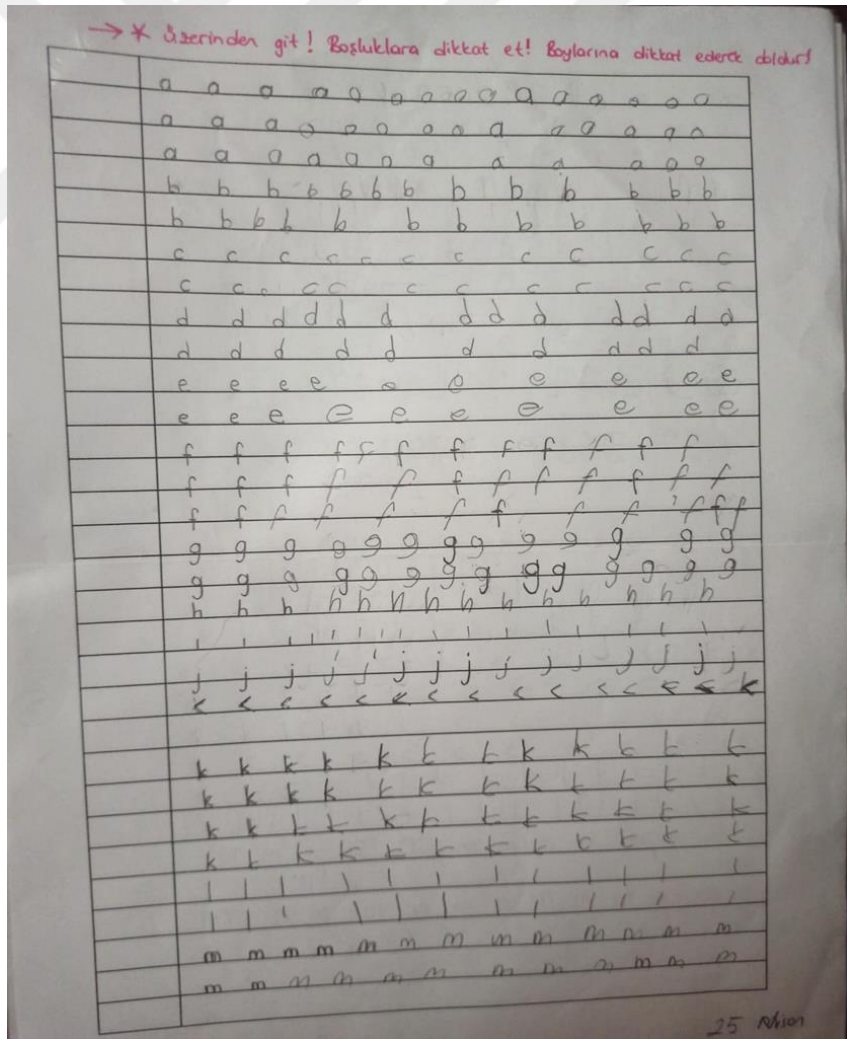 → * üzerinden git! Boşluklara dikkat et! Boylarına dikkat ederek doldur!
a a a a a a a a a a a a a a a
a a a a a a a a a a a a a a
a a a a a a a a a a a a
b b b b b b b b b b b b b
b b b b b b b b b b b b
c c c c c c c c c c c c
c c c c c c c c c c c c
d d d d d d d d d d d d d
d d d d d d d d d d
e e e e e e e e e e
e e e e e e e e e e
f f f f f f f f f f f f
f f f f f f f f f f f f
f f f f f f f f f f f f
g g g g g g g g g g g g g
g g g g g g g g g g g g g
h h h h h h h h h h h h h h
ı ı ı ı ı ı ı ı ı ı ı ı ı ı ı
j j j j j j j j j j j j j j
k
k k k k k k k k k k k k
k k k k k k k k k k k k
k k k k k k k k k k k k
k k k k k k k k k k k k
l l l l l l l l l l l l
l l l l l l l l l l l l
m m m m m m m m m m m m m
m m m m m m m m m m m m
25 Nisan